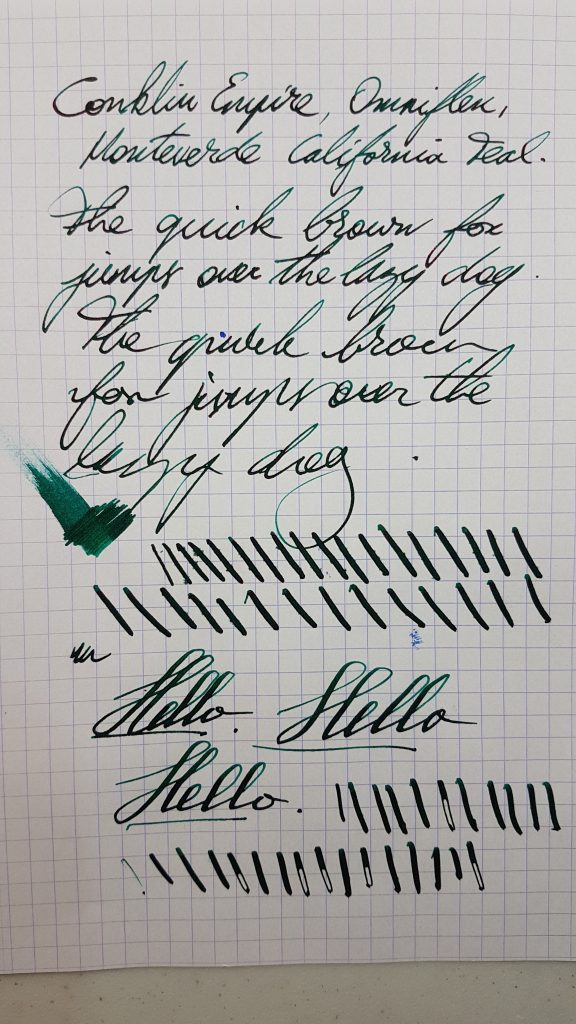 Conklin Empire, Omniflex,
Monteverde California Teal.
The quick brown fox
jumps over the lazy dog.
The quick brown
fox jumps over the
lazy dog.
Hello. Hello
Hello.